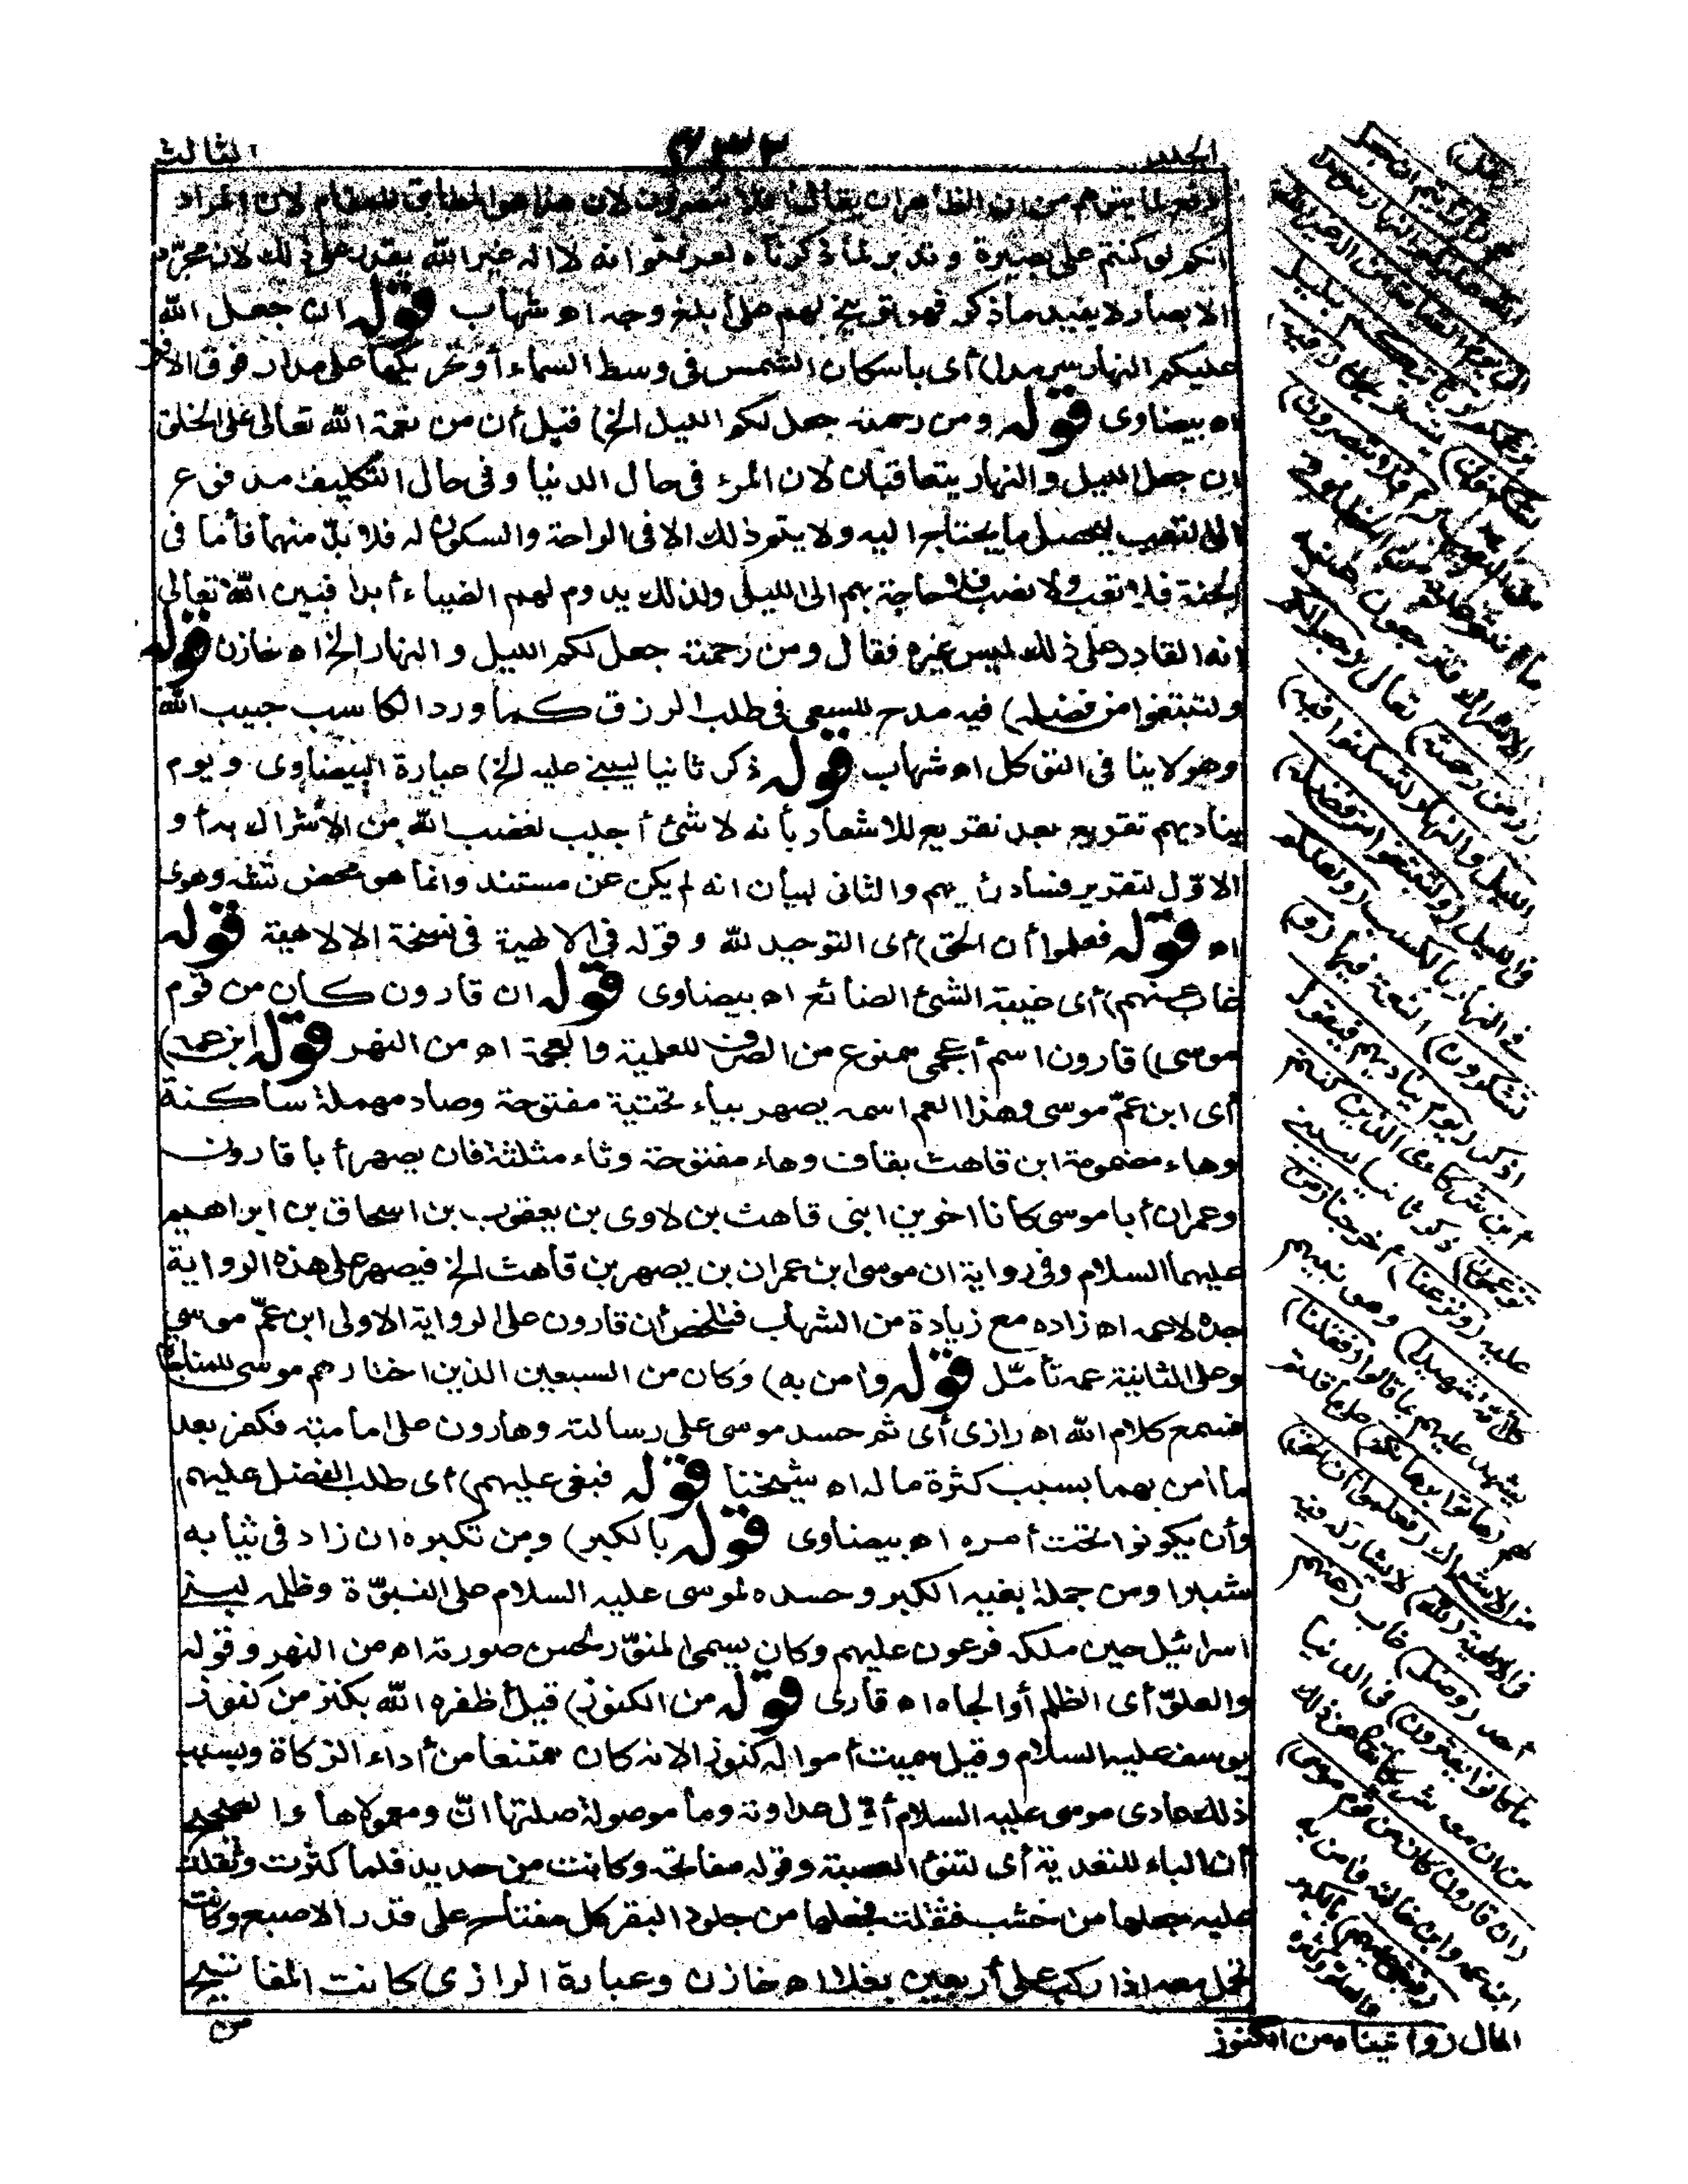 الجلد
٤٣٢
الثالث
دفع لما يتوهم من ان الظاهر ان يقال لنا فلا تتصرفون لان هذا هو المطابق للمقام لان المراد
انكم لو كنتم على بصيرة وتدبر لما ذكرناه لعرفتموا انه لا اله غير الله يقدر على ذلك لان مجرّد
الابصار لا يفيد ما ذكر فهو توبيخ لهم على أبلغ وجه اه شهاب قوله ان جعل الله
عليكم النهار سرمدا) أى باسكان الشمس فى وسط السماء أو تحريكها على مدار فوق الافق
اه بيضاوى قوله ومن رحمته جعل لكم الليل الخ) قيل أن من نعمة الله تعالى على الخلق
ان جعل الليل والنهار يتعاقبان لان المرء فى حال الدنيا وفى حال التكليف مدفوع
الى التعب ليحصل ما يحتاج اليه ولا يتم ذلك الا فى الراحة والسكون له فلا بدّ منهما فأما فى
الجنة فلا تعب ولا نصب فلا حاجة بهم الى الليل ولذلك يدوم لهم الضياء أبدا فبين الله تعالى
انه القادر على ذلك ليس غيره فقال ومن رحمته جعل لكم الليل والنهار الخ اه خازن قوله
ولتبتغوا من فضله) فيه مدح للسعى فى طلب الرزق كما ورد الكاسب حبيب الله
وهو لا ينافى التوكل اه شهاب قوله ذكر ثانيا ليبنى عليه الخ) عبارة البيضاوى ويوم
يناديهم تقريع بعد تقريع للاشعار بأنه لا شئ أجلب لغضب الله من الاشراك به أو
الاوّل لتقرير فساد رأيهم والثانى لبيان انه لم يكن عن مستند وانما هو محض تشه وهوى
اه قوله فعلموا أن الحق) أى التوحيد لله وقوله فى الالهية فى نسخة الالاهية قوله
غاب عنهم) أى غيبة الشئ الضائع اه بيضاوى قوله ان قارون كان من قوم
موسى) قارون اسم أعجمى ممنوع من الصرف للعلمية والعجمة اه من النهر قوله ابن عمه)
أى ابن عمّ موسى وهذا العم اسمه يصهر بياء تحتية مفتوحة وصاد مهملة ساكنة
وهاء مضمومة ابن قاهث بقاف وهاء مفتوحة وثاء مثلثة فان يصهر أبا قارون
وعمران أبا موسى كانا اخوين ابنى قاهث بن لاوى بن يعقوب بن اسحاق بن ابراهيم
عليهما السلام وفى رواية ان موسى ابن عمران بن يصهر بن قاهث الخ فيصهر على هذه الرواية
جده لاعمه اه زاده مع زيادة من الشهاب فتلخص أن قارون على الرواية الاولى ابن عمّ موسى
وعلى الثانية عمه تأمّل قوله وامن به) وكان من السبعين الذين اختارهم موسى للمناجاة
فسمع كلام الله اه رازى أى ثم حسد موسى على رسالته وهارون على امامته فكفر بعد
ما امن بهما بسبب كثرة ماله اه شيخنا قوله فبغى عليهم) أى طلب الفضل عليهم
وأن يكونوا تحت أمره اه بيضاوى قوله بالكبر) ومن تكبره ان زاد فى ثيابه
شبرا ومن جملة بغيه الكبر وحسده لموسى عليه السلام على النبوّة وظلمه لبنى
اسرائيل حين ملكه فرعون عليهم وكان يسمى المنوّر لحسن صورته اه من النهر وقوله
والعلوّ أى الظلم أو الجاه اه قارى قوله من الكنوز) قيل أظفره الله بكنز من كنوز
يوسف عليه السلام وقيل سميت أمواله كنوزا لانه كان ممتنعا من أداء الزكاة وبسبب
ذلك عادى موسى عليه السلام أوّل عداوته وما موصولة صلتها انّ ومعمولاها والصحيح
أن الباء للتعدية أى لتنوأ العصبة وقوله مفاتحه وكانت من حديد فلما كثرت وثقلت
عليه جعلها من خشب فثقلت فجعلها من جلود البقر كل مفتاح على قدر الاصبع وكانت
تحمل معه اذا ركب على أربعين بغلا اه خازن وعبارة الرازى كانت المفاتيح
من
(قل)
أرأيتم ان جعل
الله عليكم النهار سرمدا
الى يوم القيامة من اله غير الله
يأتيكم بليل
تسكنون فيه
أفلا تبصرون)
ما أنتم عليه
(ومن رحمته) تعالى (جعل لكم
الليل والنهار لتسكنوا فيه)
فى الليل (ولتبتغوا من فضله)
فى النهار بالكسب (ولعلكم
تشكرون) النعمة فيهما (و)
اذكر (يوم يناديهم فيقول
أين شركائى الذين كنتم
تزعمون) ذكر ثانيا ليبنى
عليه (ونزعنا) أخرجنا (من
كل أمة شهيدا) وهو نبيهم
يشهد عليهم بما قالوا (فقلنا)
لهم (هاتوا برهانكم) على ما قلتم
من الاشراك (فعلموا أن الحق)
فى الالهية (لله) لا يشاركه فيه
أحد (وضل) غاب (عنهم
ما كانوا يفترون) فى الدنيا
من ان معه شريكا تعالى عن ذلك
(ان قارون كان من قوم موسى)
ابن عمه وابن خالته وامن به
(فبغى عليهم) بالكبر
والعلو وكثرة
المال (واتيناه من الكنوز